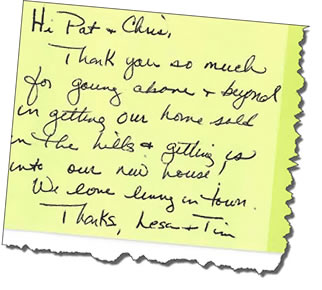 Hi Pat + Chris,
Thank you so much
for going above + beyond
in getting our home sold
in the hills & getting us
into our new house!
We love living in town.
Thanks, Lesa + Tim